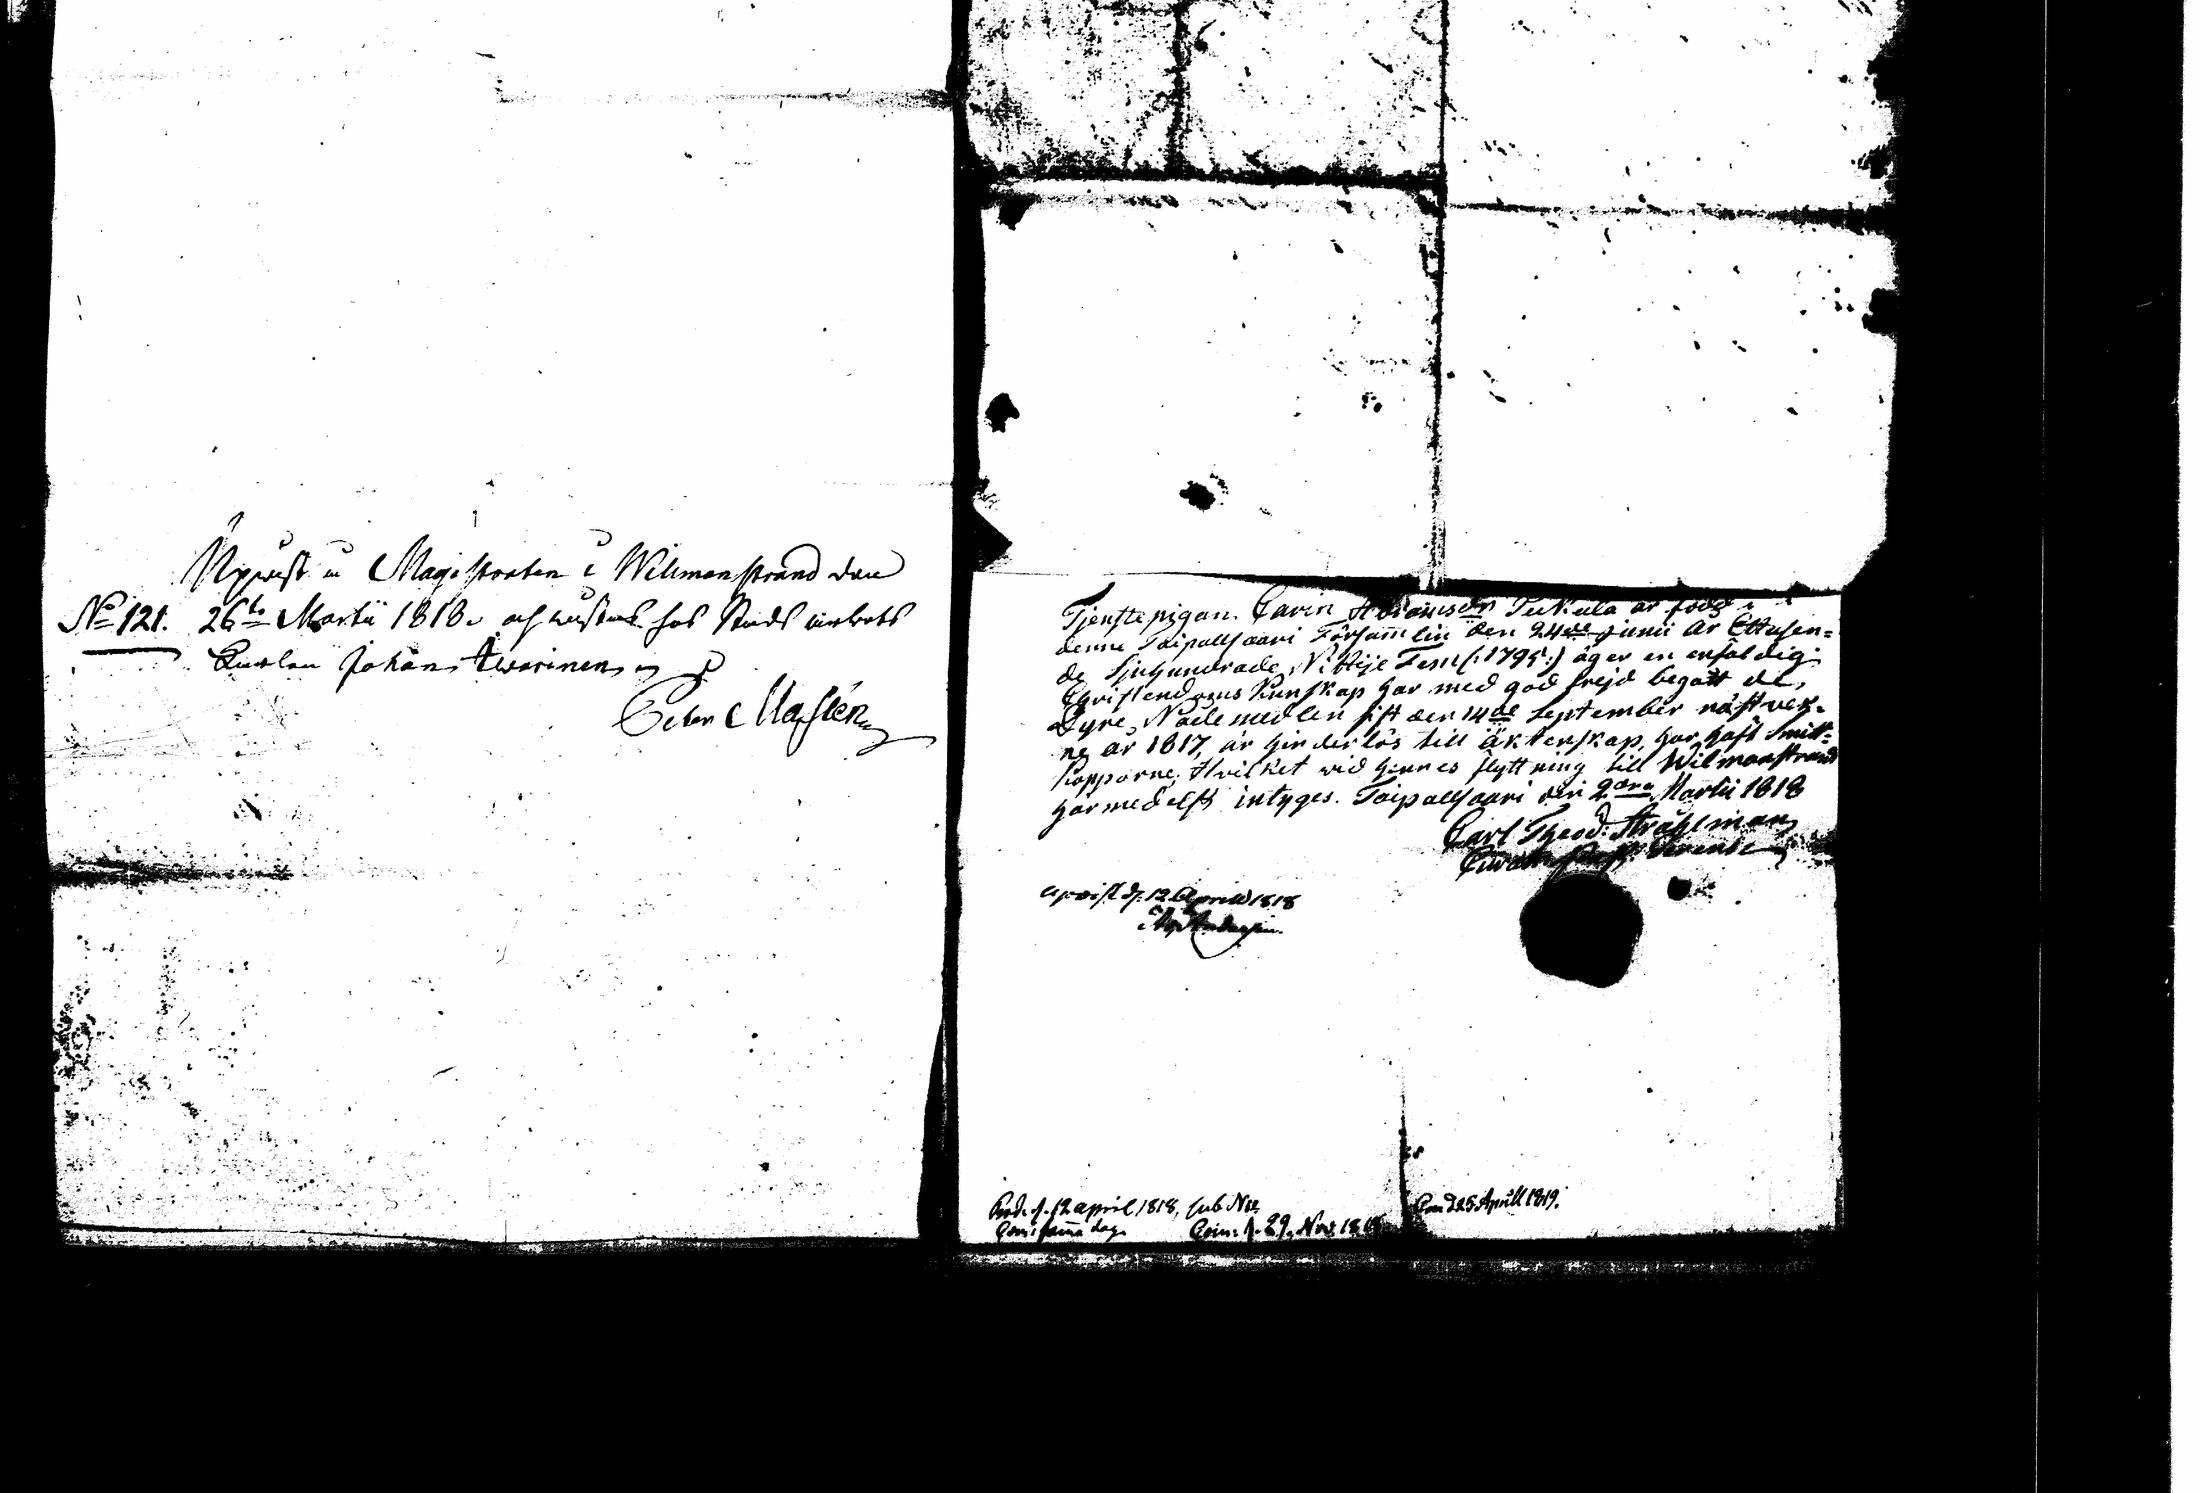 Upwist i Magistraten i Wilmanstrand den
No 121. 26to Martii 1818. och wistas hos Stads
Karlen Johan Awarinen
Peter
Tjenstepigan Carin Abramsdr Tukala är född i
denne Taipalsaari Församlin den 24de Junii År Ettusen=
de Sjuhundrade Nittije Fem (:1795:) äger en enfaldig
Christendoms Kunskap har med god frejd begått de
Dyre Nådemedlen sist den 14de September nästvek=
ne år 1817, är hinderlös till äktenskap, har haft Smitt=
kopporne. Hvilket vid hennes flyttning till Wilmanstrand
härmedelst intyges. Taipalsaari den 2dra Martii 1818
Carl Theod: Stråhlman
upvist d. 12 April 1818
Prod. d. 12 april 1818, sub No
Com: samma dag. Com: d. 29. Nov. 1818
Com d 25 Aprill 1819.